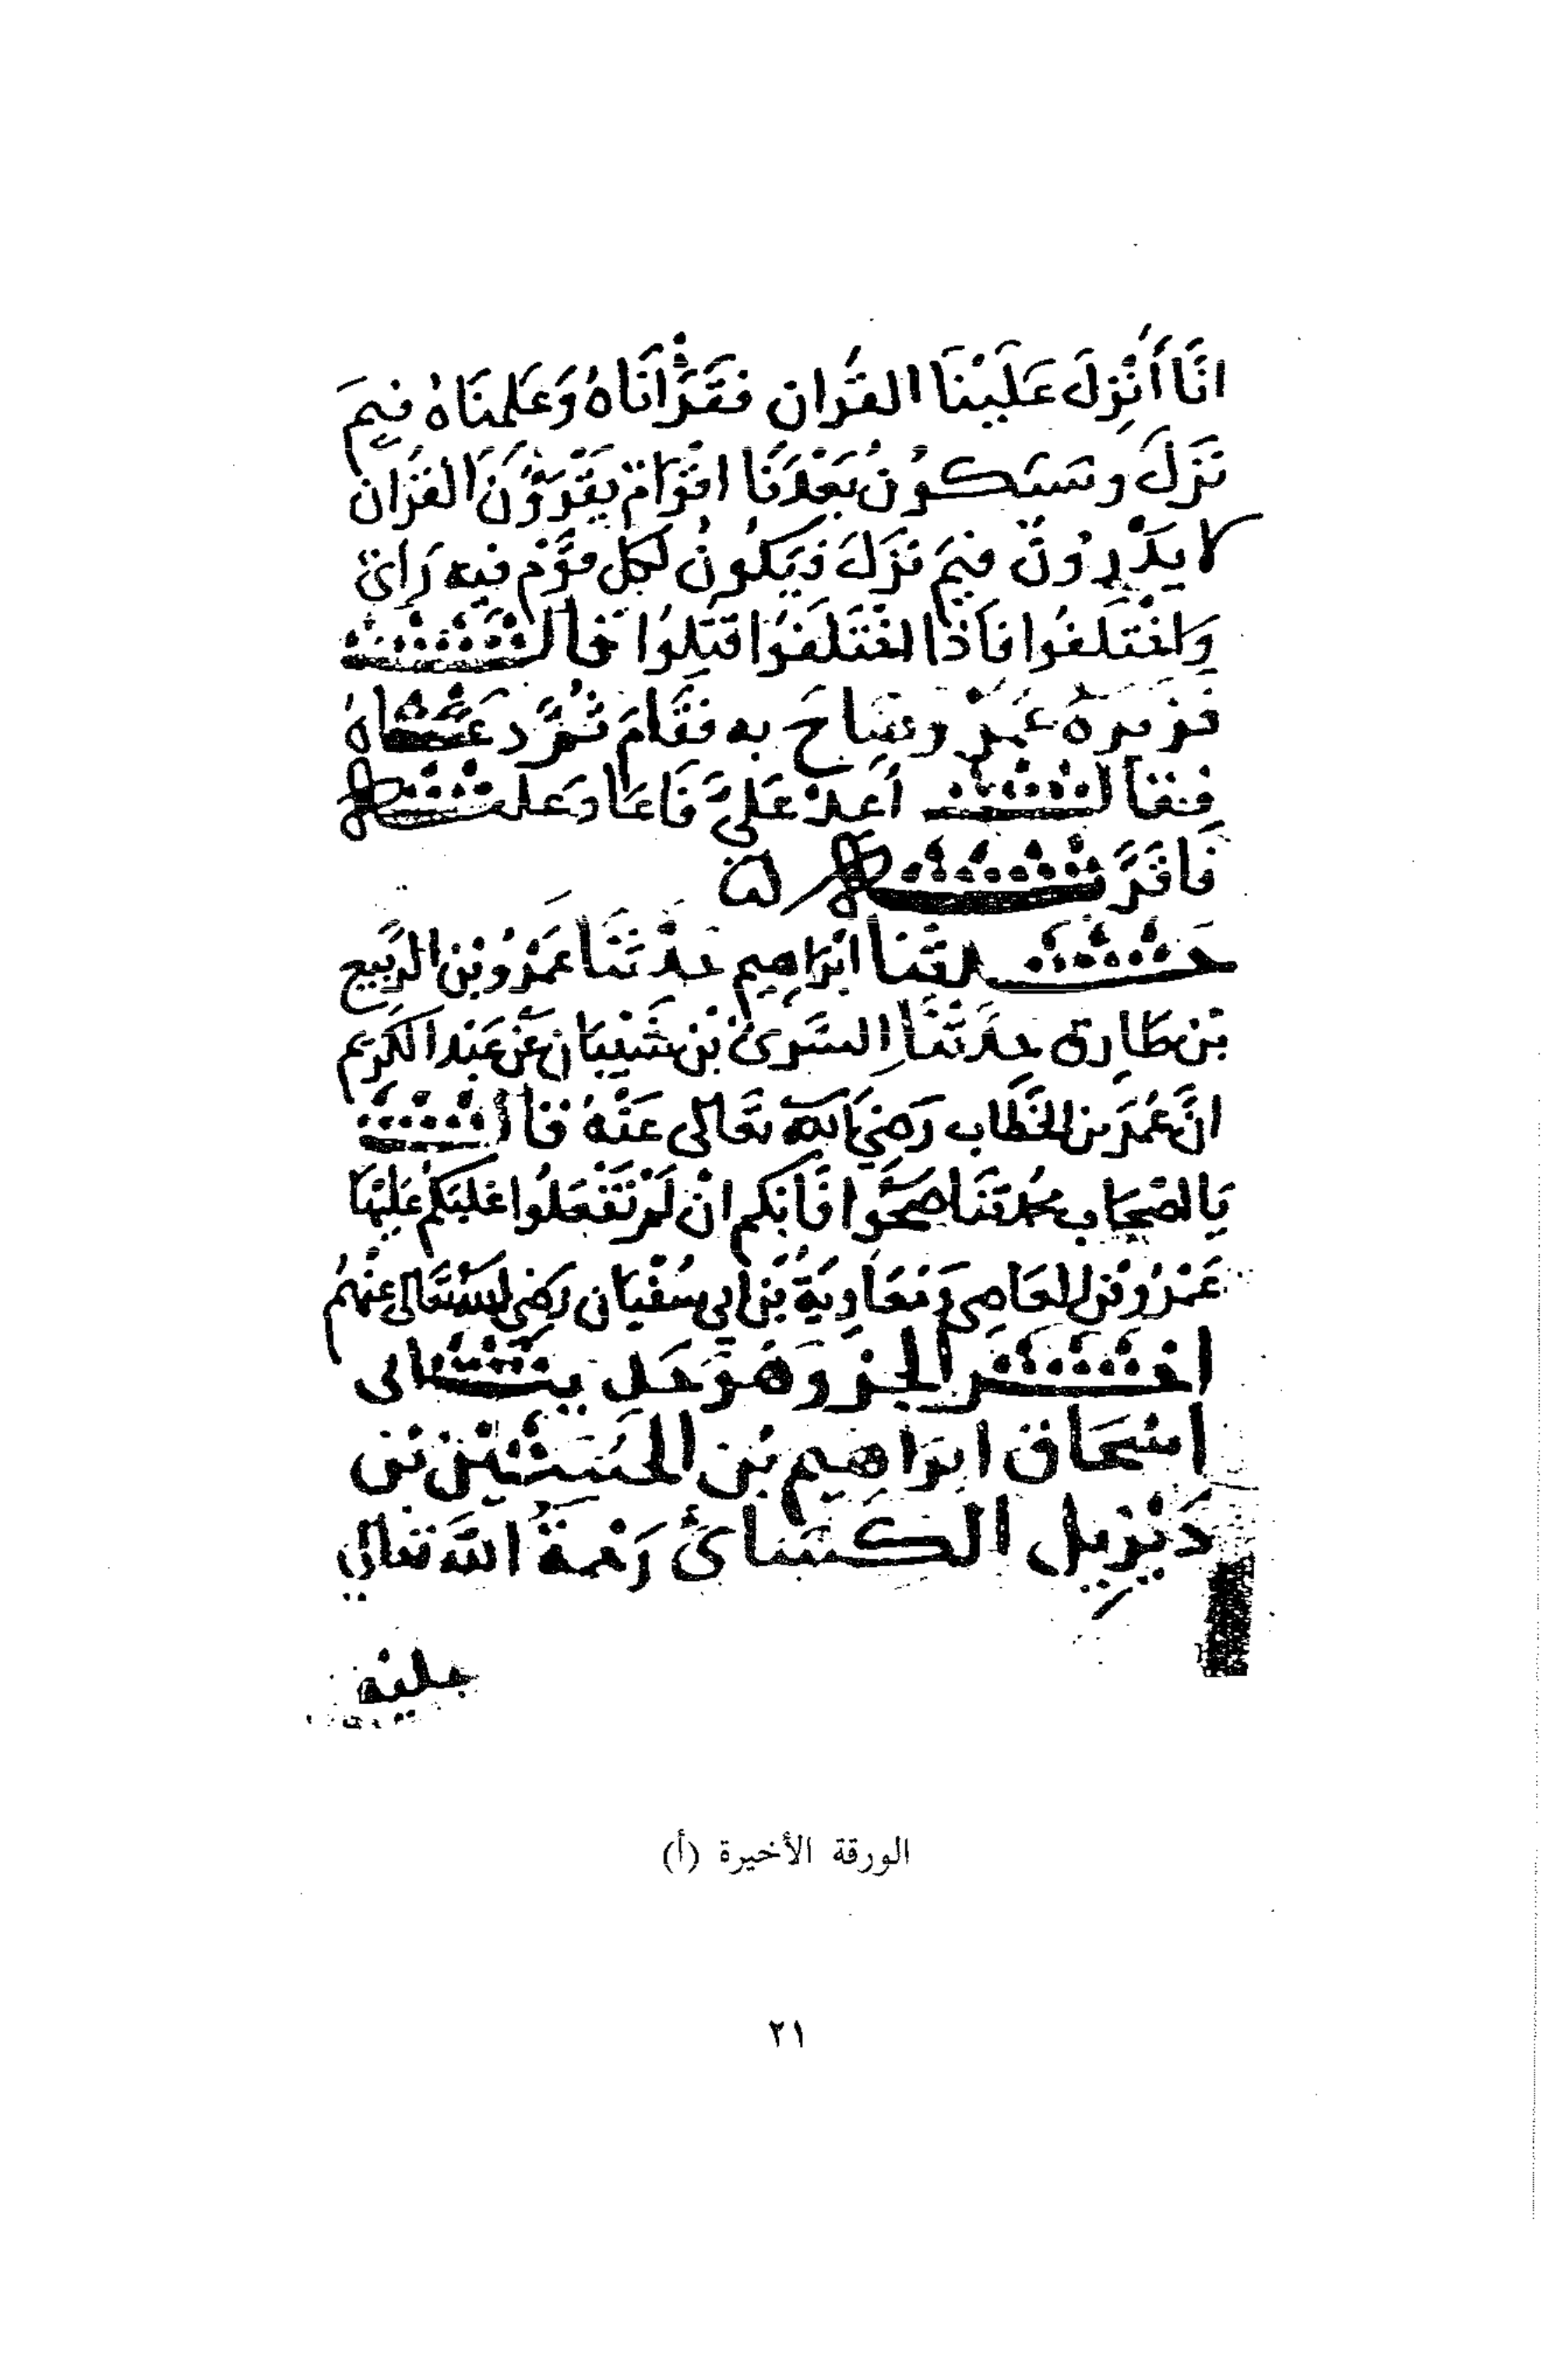 انَّا أُنْزِلَ عَلَيْنَا القُران فَقَرَأنَاهُ وَعَلِمنَاهُ فِيمَ
نَزَلَ وسَيَكوُنُ بَعْدَنَا اقْوَامٌ يَقْرَؤُنَ القُرَان
لا يَدْرِوُنَ فيمَ نَزَلَ فيَكُونُ لِكل قَوْم فِيه رَايٌ
وَاخْتَلَفُوا فَاذَا اخْتَلَفُوا قتَلوُا قال
فَزَبَرَهُ عُمَرُ وصَاحَ به فقَامَ ثُمَّ دعَاهُ
فقال أعد عَلَيَّ فَاعَادَ عليه
فَاقَرَّ به
حدثنا ابْرَاهِيم حَدثنَا عَمْرُو بْن الرَّبيع
بْن طَارِق حدثنَا السَّرِىّ بْن شَيْبَان عَنْ عَبْد الكَرِيم
انَّ عُمَرَ بن الخَطَّاب رَضيَ الله تعَالى عَنْهُ قال
يَا اصْحَاب محمد تنَاصَحُوا فَانكم انْ لَمْ تَفْعَلُوا غلبَكُم عَلَيْهَا
عَمْرُو بْن العَاصِى وَمُعَاوِيَةُ بْن ابى سُفْيَان رَضى الله تعَالى عنْهُم
اخر الجزء وَهوَ حَدِيث ابى
اسْحَاق ابرَاهِيم بْن الحُسَيْن بْن
دَيْزِيل الكسَائى رَحْمَةُ اللهَ تعَالى
عليه
الورقة الأخيرة (أ)
٢١